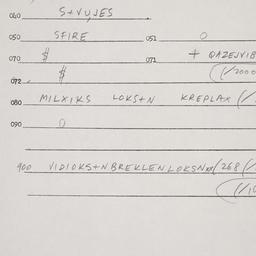 040 S+VUJES
050 SFIRE 051 O
070 $ 071 + QAZEJVIB
072 $ (/2000
080 MILXIKS LOKS+N KREPLAX (/
090 0
400 VIDIOKS+N BREKLEN LOKSN